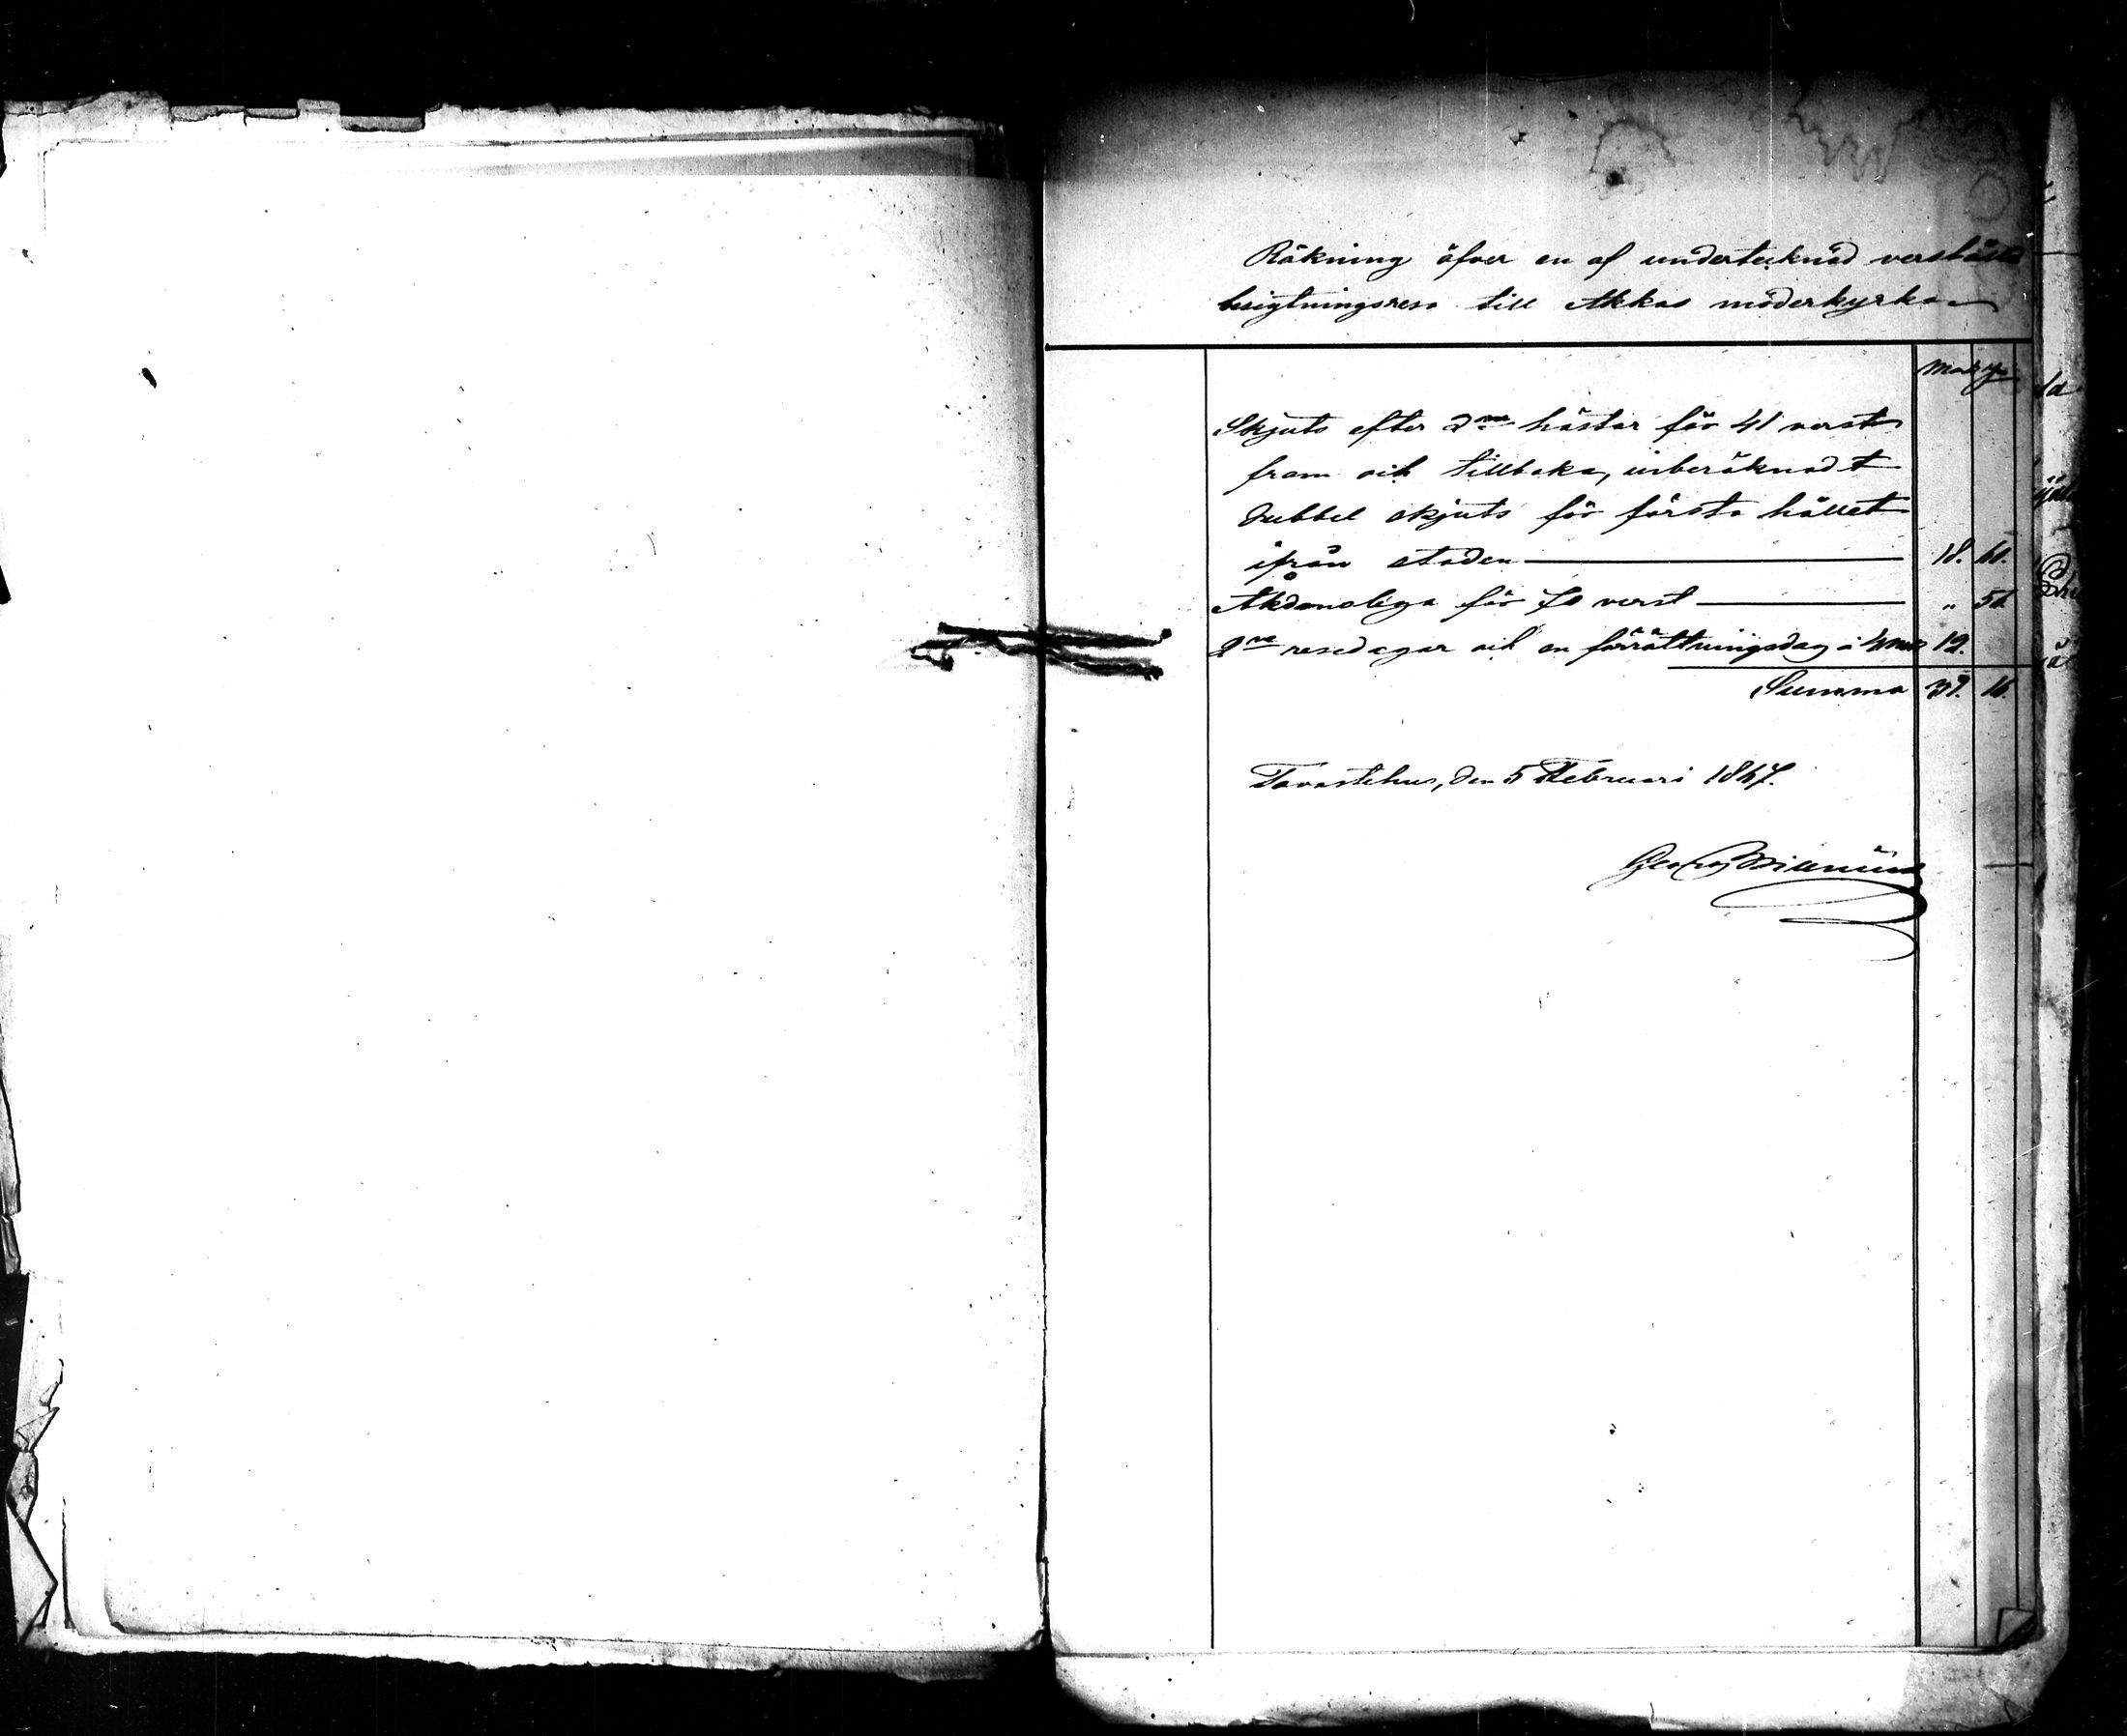 Räkning öfver en af undertecknad verstäld
besigtningsresa till Akkas moderkyrka
Mark p.
Skjuts efter 2ne hästar för 41 verst
fram och tillbaka, inberäknadt
dubbel skjuts för första hållet
ifrån staden 18. 60.
Åkdonslega för 70 verst " 56
2ne resedagar och en förrättningsdag à 4 mk 12.
Summa 31. 16.
Tavastehus, den 5 Februari 1867.
Georg Willenius